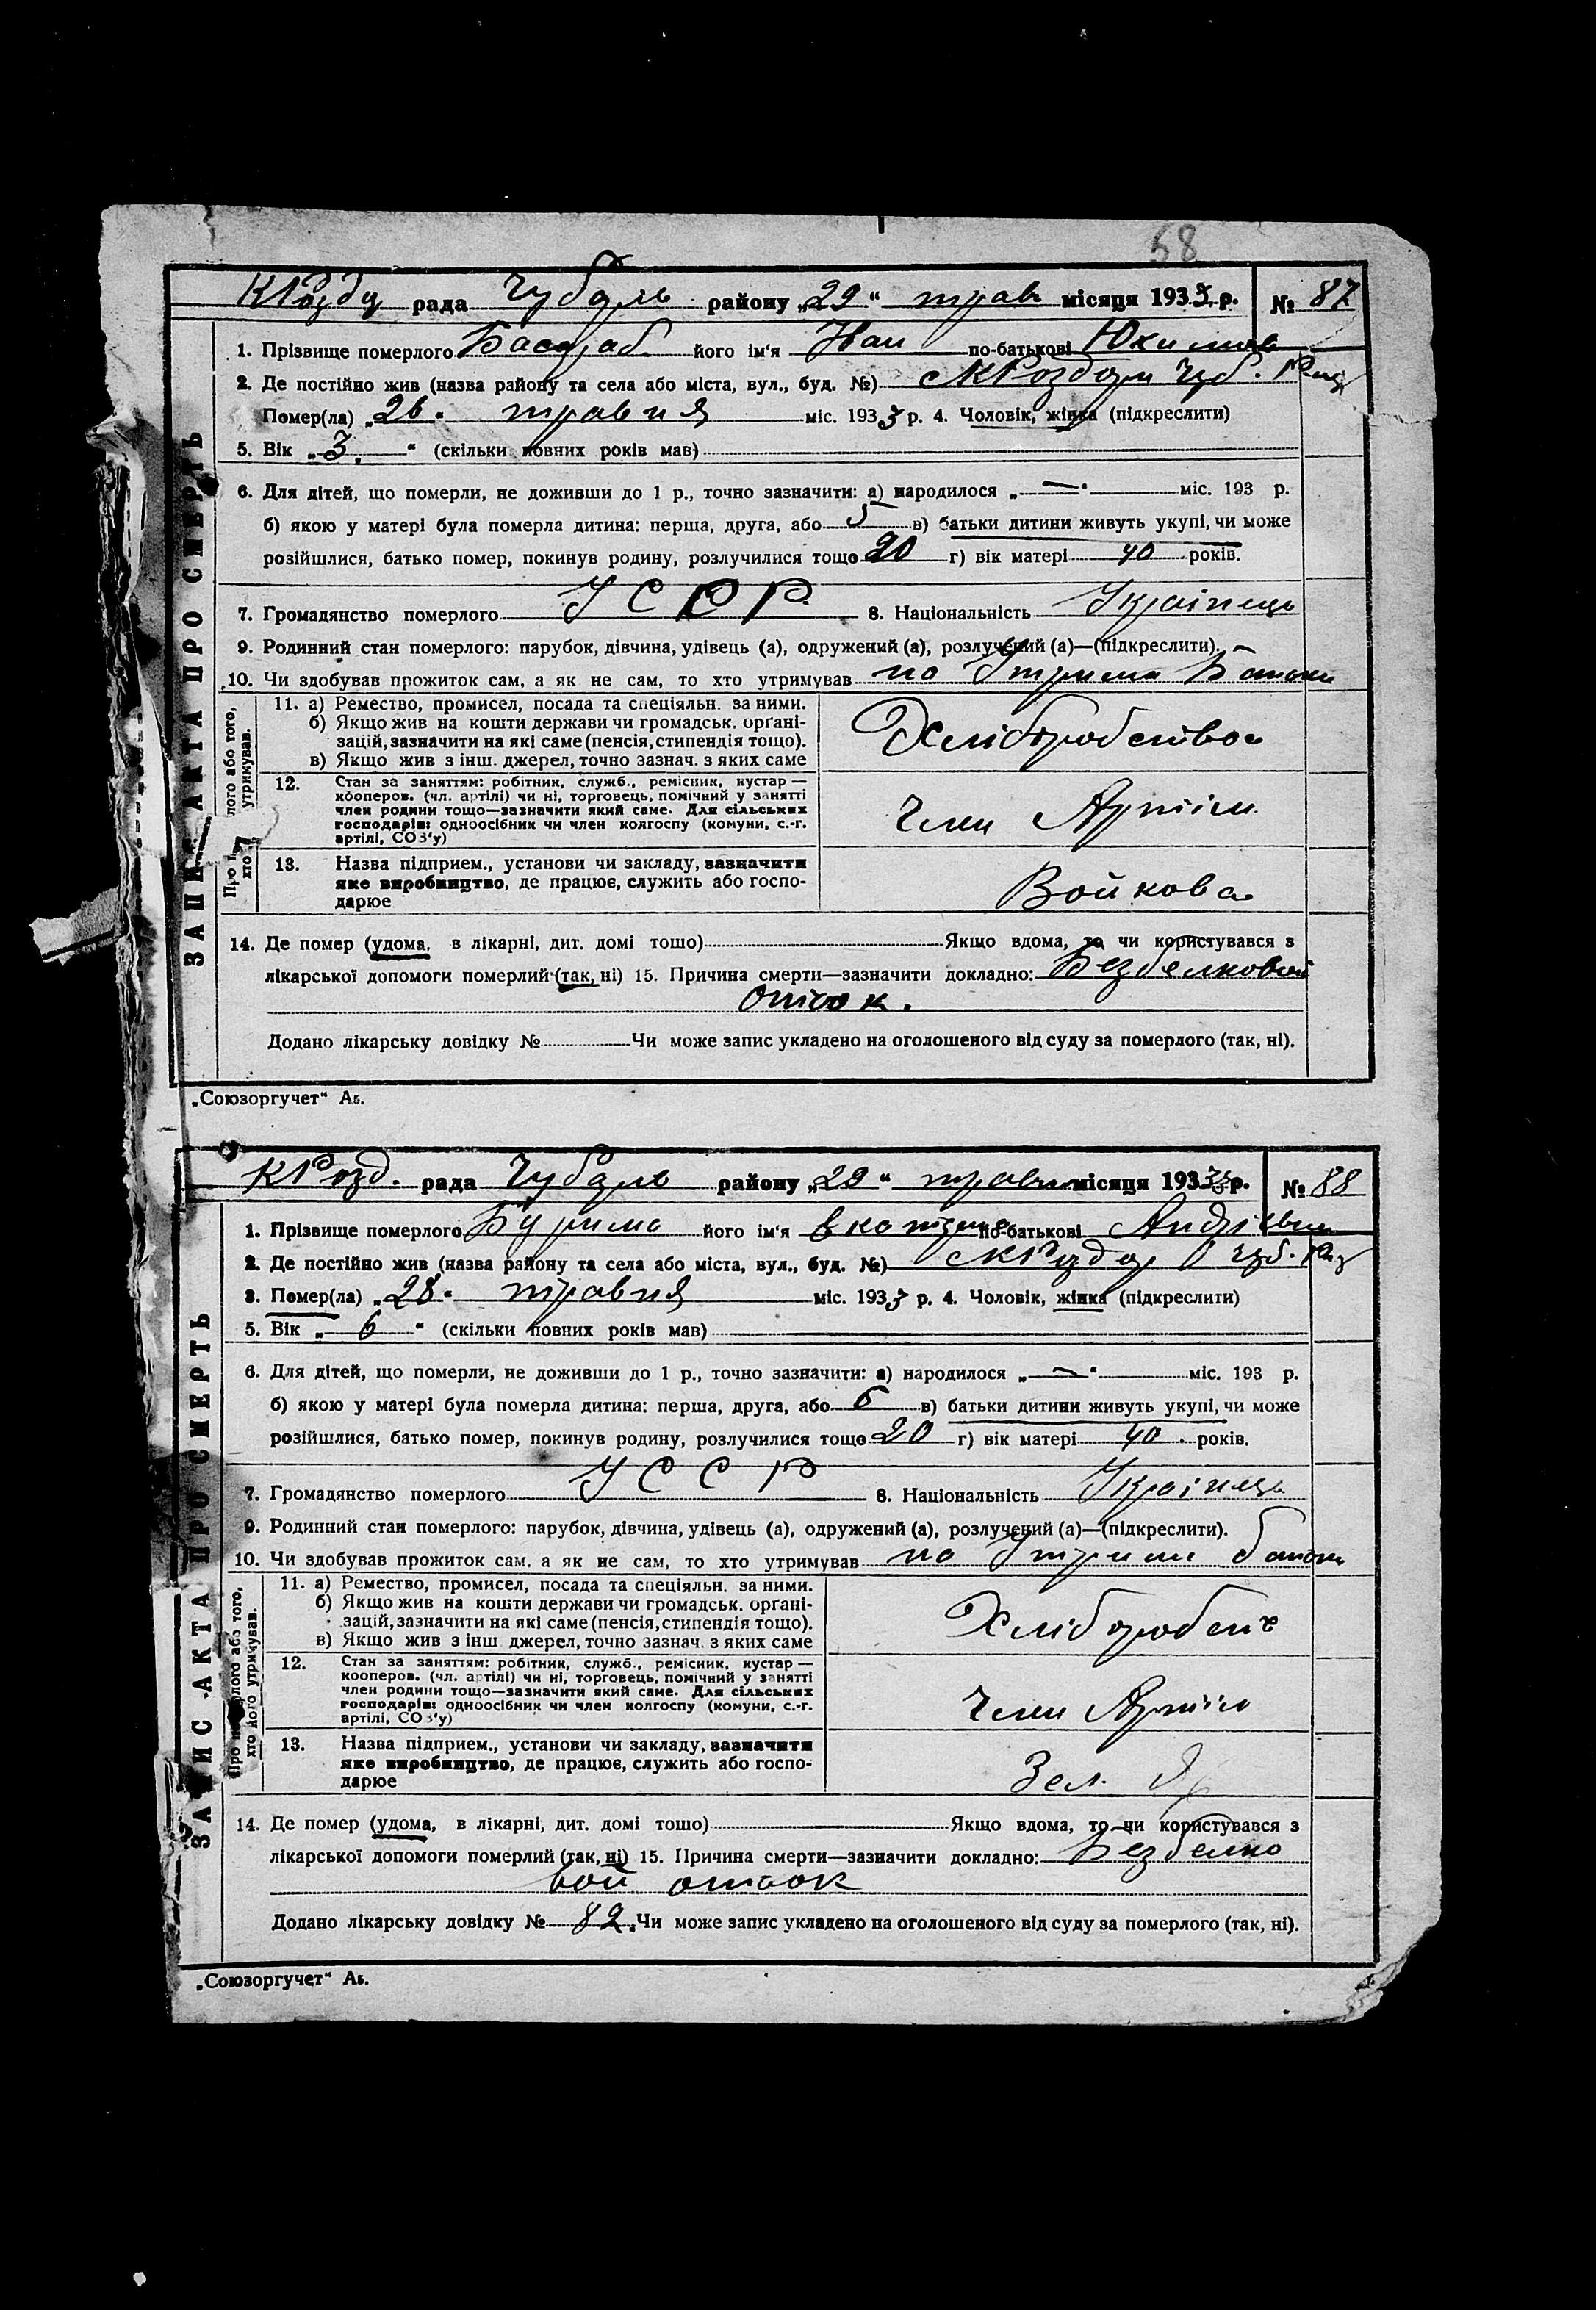 58
КРозду рада Чубарь району „29“ трав місяця 1933 р. № 87
ЗАПИС АКТА ПРО СМЕРТЬ
1. Прізвище померлого Басараб його ім'я Іван по-батькові Юхимов
2. Де постійно жив (назва району та села або міста, вул., буд. №) с КРоздори Чуб. Р-ну
Помер(ла) „26. травня міс. 1933 р. 4. Чоловік, жінка (підкреслити)
5. Вік „3.“ (скільки повних років мав)
6. Для дітей, що померли, не доживши до 1 р., точно зазначити: а) народилося „—“ міс. 193 р.
б) якою у матері була померла дитина: перша, друга, або 5 в) батьки дитини живуть укупі, чи може
розійшлися, батько помер, покинув родину, розлучилися тощо 20 г) вік матері 40 років.
7. Громадянство померлого УССР 8. Національність Українець
9. Родинний стан померлого: парубок, дівчина, удівець (а), одружений (а), розлучений (а)—(підкреслити).
10. Чи здобував прожиток сам, а як не сам, то хто утримував на Утриман Батьки
лого або того,
утримував.
11. а) Ремество, промисел, посада та спеціяльн. за ними.
б) Якщо жив на кошти держави чи громадськ. орґані-
зацій, зазначити на які саме (пенсія, стипендія тощо).
в) Якщо жив з інш. джерел, точно зазнач. з яких саме
Хліборобство
12. Стан за заняттям: робітник, служб., ремісник, кустар —
кооперов. (чл. артілі) чи ні, торговець, помічний у занятті
член родини тощо—зазначити який саме. Для сільських
господарів: одноосібник чи член колгоспу (комуни, с.-г.
артілі, СОЗ'у)
Член Артіли
13. Назва підприєм., установи чи закладу, зазначити
яке виробництво, де працює, служить або госпо-
дарює
Войкова
14. Де помер (удома, в лікарні, дит. домі тошо) Якщо вдома, то чи користувався з
лікарської допомоги померлий (так, ні) 15. Причина смерти—зазначити докладно: Безбелковий
отіок.
Додано лікарську довідку № Чи може запис укладено на оголошеного від суду за померлого (так, ні).
„Союзоргучет“ Аь.
КРозд. рада Чубарь району „29“ травн місяця 1933 р. № 88
ЗАПИС АКТА ПРО СМЕРТЬ
1. Прізвище померлого Бурима його ім'я Екатерина по-батькові Андрієвна
2. Де постійно жив (назва району та села або міста, вул., буд. №) с КРоздор Чуб. Р-ну
3. Помер(ла) „28. травня міс. 1933 р. 4. Чоловік, жінка (підкреслити)
5. Вік „6“ (скільки повних років мав)
6. Для дітей, що померли, не доживши до 1 р., точно зазначити: а) народилося „—“ міс. 193 р.
б) якою у матері була померла дитина: перша, друга, або 5 в) батьки дитини живуть укупі, чи може
розійшлися, батько помер, покинув родину, розлучилися тощо 20 г) вік матері 40 років.
7. Громадянство померлого УССР 8. Національність Українець
9. Родинний стан померлого: парубок, дівчина, удівець (а), одружений (а), розлучений (а)—(підкреслити).
10. Чи здобував прожиток сам, а як не сам, то хто утримував на Утриман батьки
Про померлого або того,
хто його утримував.
11. а) Ремество, промисел, посада та спеціяльн. за ними.
б) Якщо жив на кошти держави чи громадськ. орґані-
зацій, зазначити на які саме (пенсія, стипендія тощо).
в) Якщо жив з інш джерел, точно зазнач. з яких саме
Хліборобст
12. Стан за заняттям: робітник, служб., ремісник, кустар —
кооперов. (чл. артілі) чи ні, торговець, помічний у занятті
член родини тощо—зазначити який саме. Для сільських
господарів: одноосібник чи член колгоспу (комуни, с.-г.
артілі, СОЗ'у)
Член Артіли
13. Назва підприєм., установи чи закладу, зазначити
яке виробництво, де працює, служить або госпо-
дарює
Зел.
14. Де помер (удома, в лікарні, дит. домі тошо) Якщо вдома, то чи користувався з
лікарської допомоги померлий (так, ні) 15. Причина смерти—зазначити докладно: Безбелко
вой отіок
Додано лікарську довідку № 82. Чи може запис укладено на оголошеного від суду за померлого (так, ні).
„Союзоргучет“ Аь.